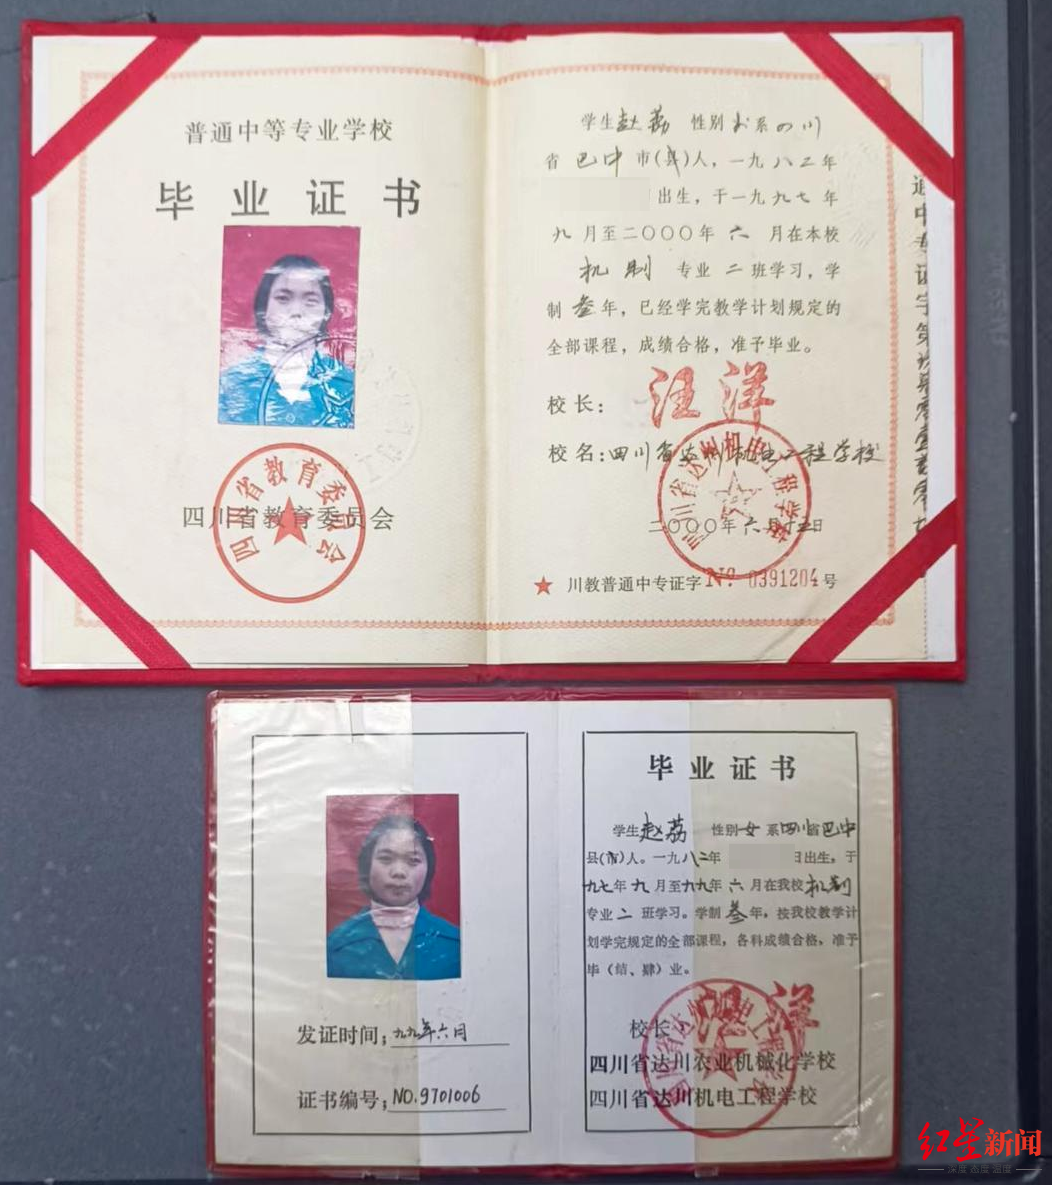 普通中等专业学校
毕业证书
四川省教育委员会
四川省教育委员会
学生赵荔 性别女系四川
省巴中市(县)人，一九八二年
出生，于一九九七年
九月至二〇〇〇年六月在本校
机制专业二班学习，学
制叁年，已经学完教学计划规定的
全部课程，成绩合格，准予毕业。
校长：汪洋
校名：四川省达州机电工程学校
二〇〇〇年六月十五日
川教普通中专证字№ 0391204号
通中专证字第
毕业证书
学生赵荔 性别女系四川省巴中
县(市)人。一九八二年 日出生，于
九七年九月至九九年六月在我校机制
专业二班学习。学制叁年，按我校教学计
划学完规定的全部课程，各科成绩合格，准予
毕（结、肄）业。
校长 汪洋
四川省达川农业机械化学校
四川省达川机电工程学校
发证时间；九九年六月
证书编号；NO.9701006
红星新闻
深度 态度 温度